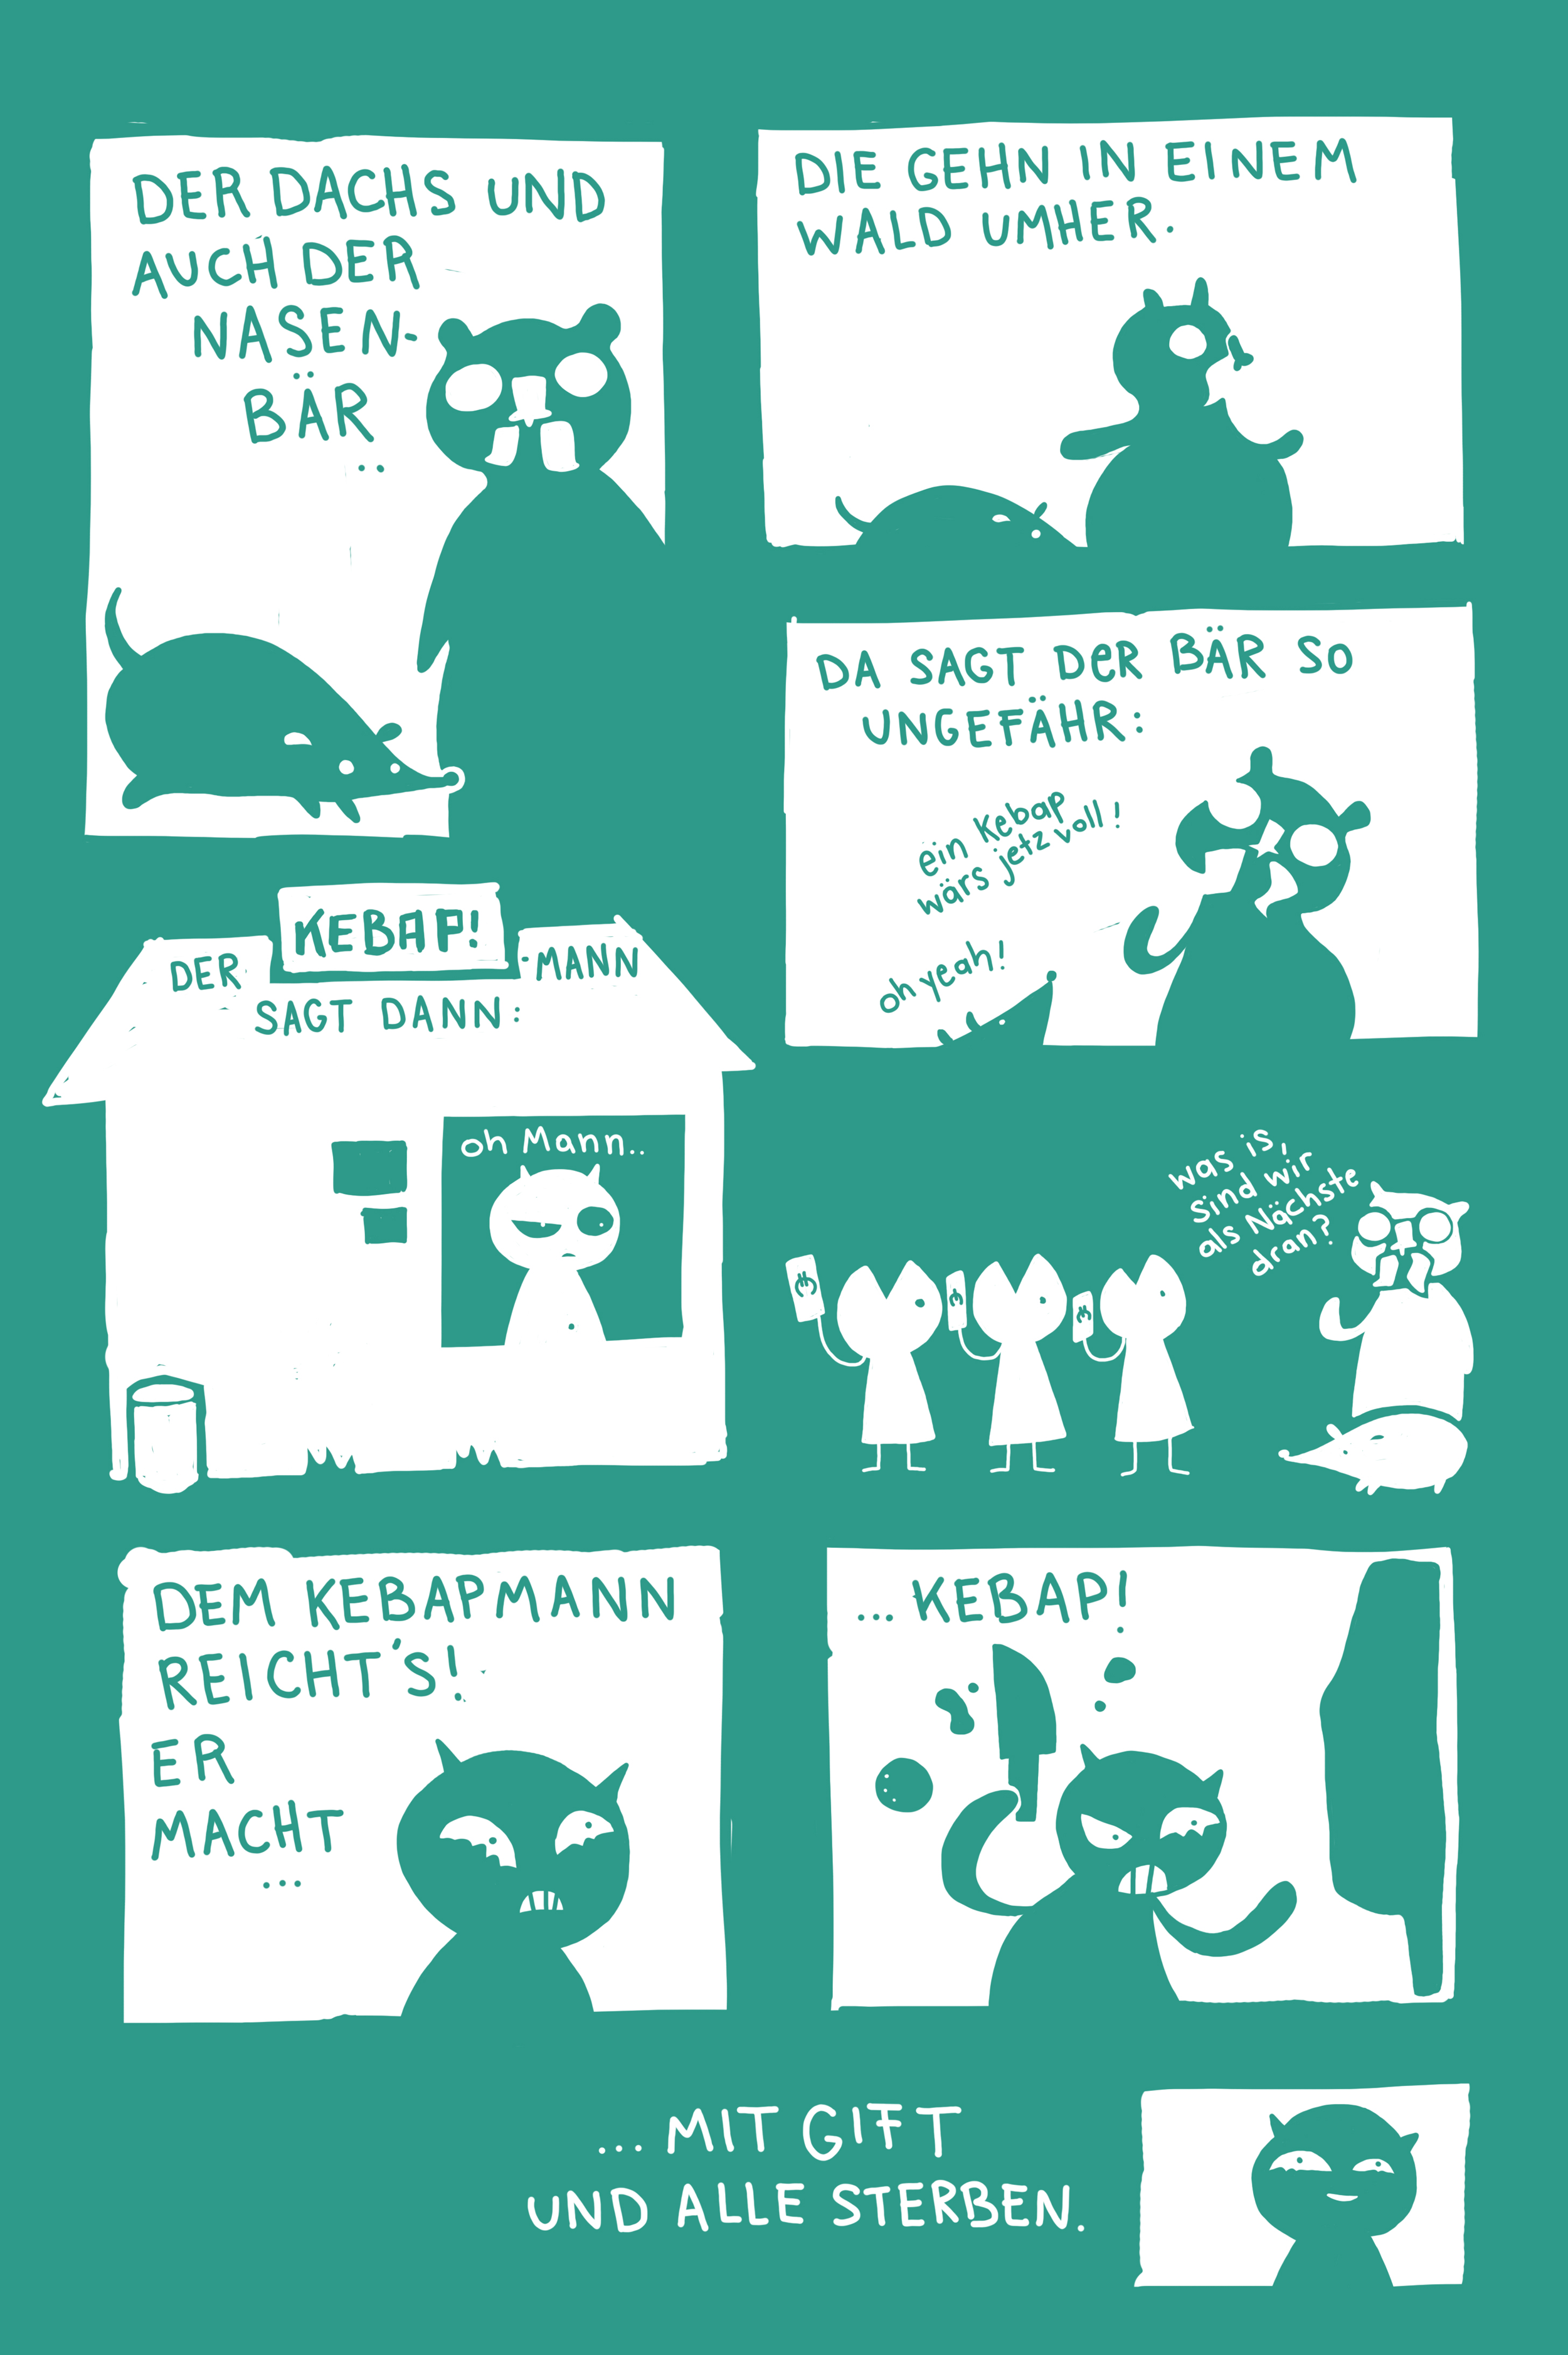 DER DACHS UND
AUCH DER
NASEN-
BÄR
...
DIE GEHN IN EINEM
WALD UMHER.
DA SAGT DER BÄR SO
UNGEFÄHR:
ein Kebap
wärs jetz voll!
oh yeah!
DER KEBAP!-MANN
SAGT DANN:
oh Mann...
was is!
sind wir
als Nächste
dran?
DEM KEBAPMANN
REICHT'S!
ER
MACHT
...
... KEBAP!
... MIT GIFT
UND ALLE STERBEN.